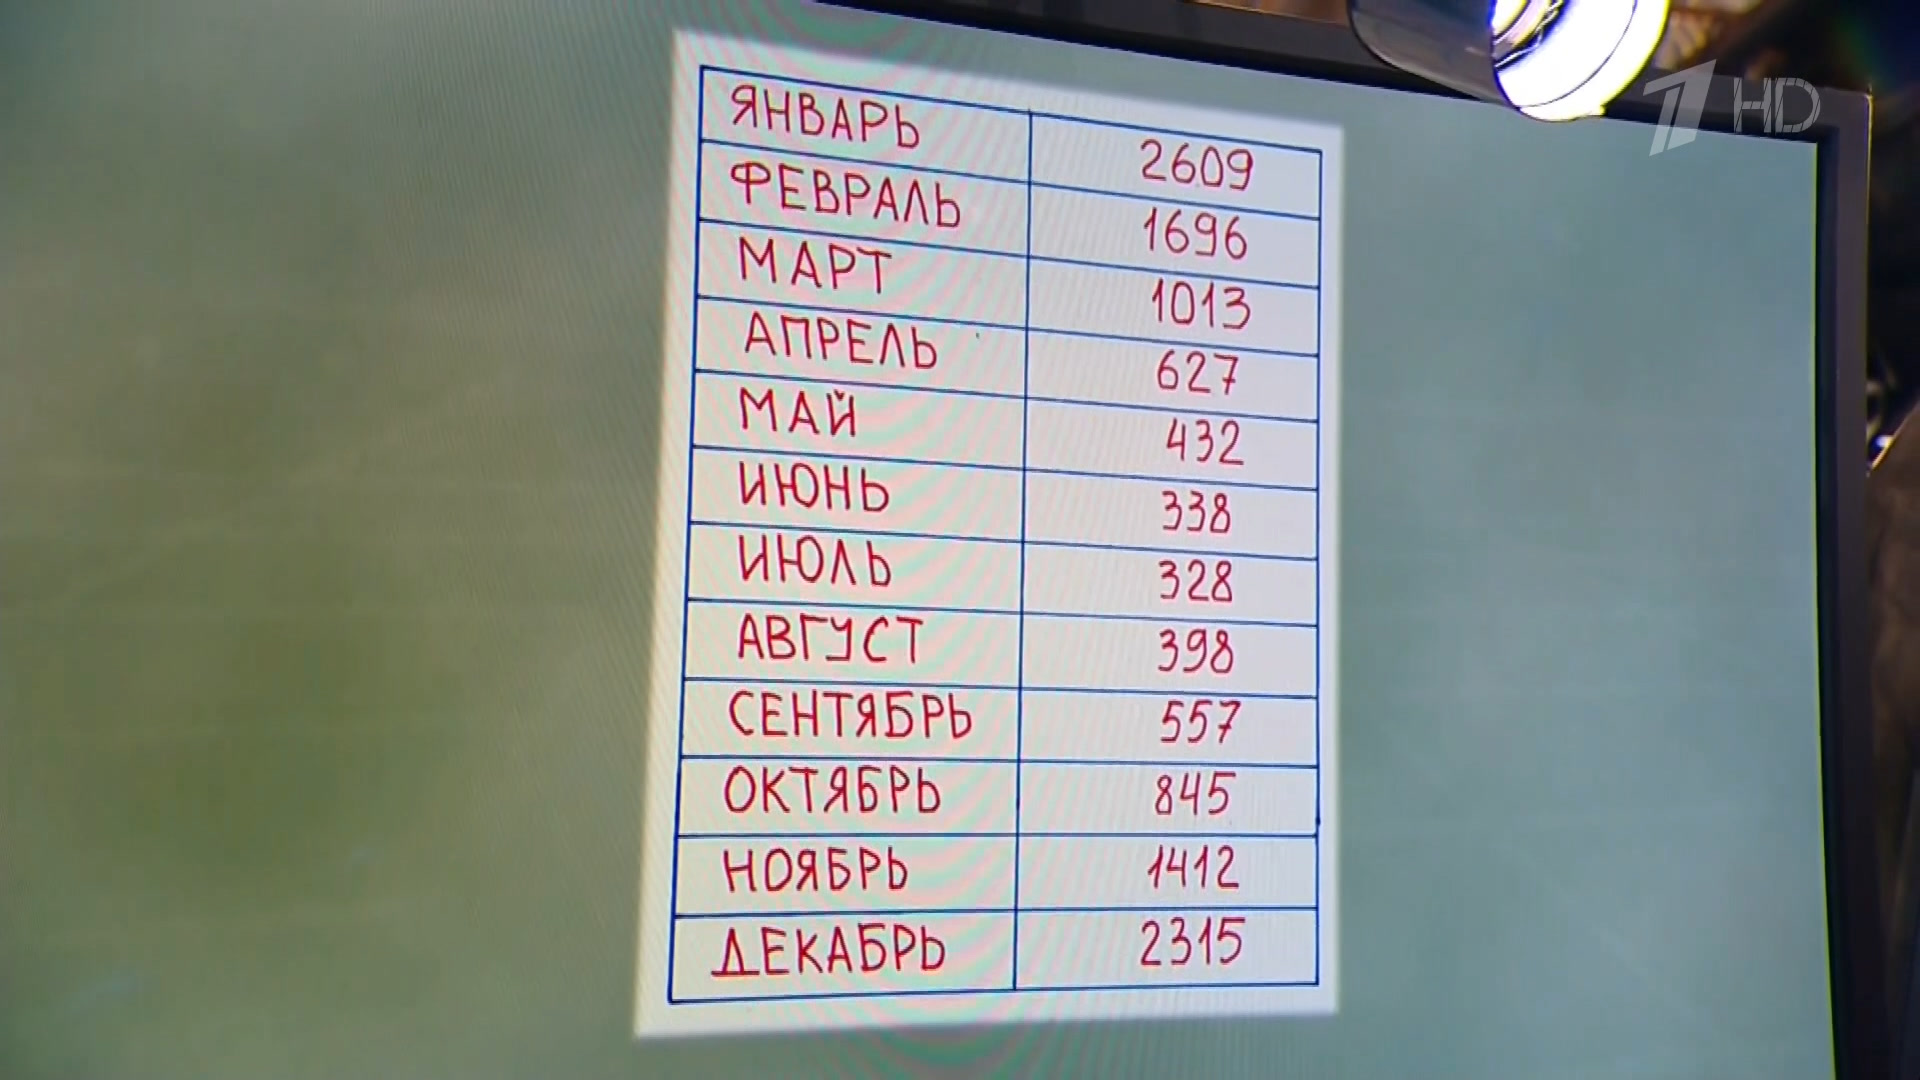 1 HD
ЯНВАРЬ 2609
ФЕВРАЛЬ 1696
МАРТ 1013
АПРЕЛЬ 627
МАЙ 432
ИЮНЬ 338
ИЮЛЬ 328
АВГУСТ 398
СЕНТЯБРЬ 557
ОКТЯБРЬ 845
НОЯБРЬ 1412
ДЕКАБРЬ 2315